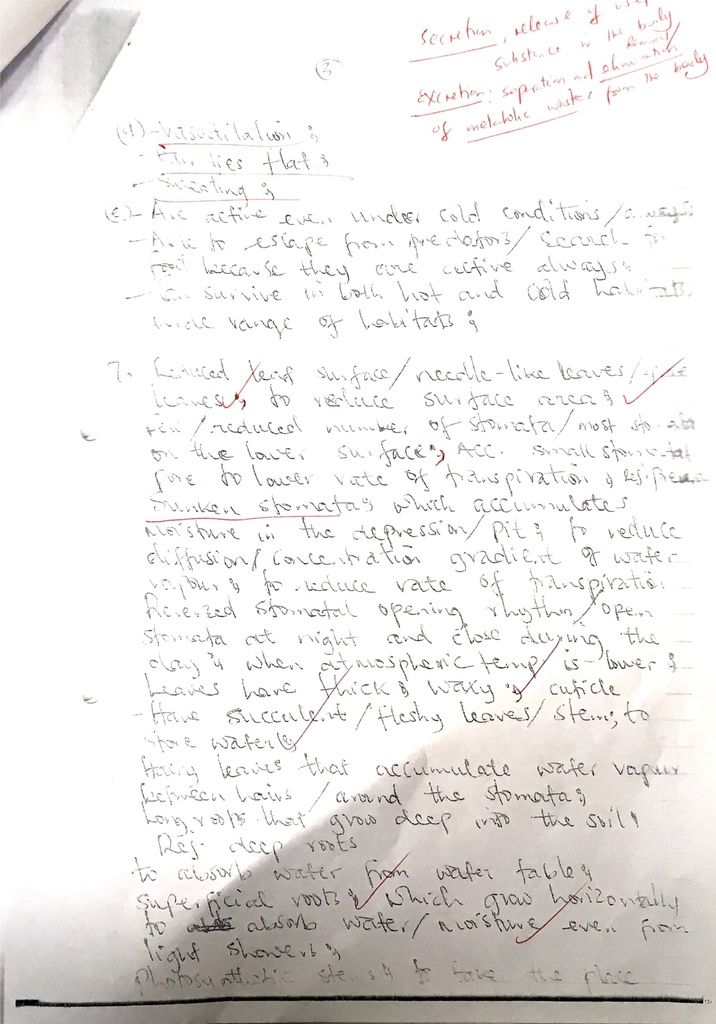 Secretion, release of
substance in the body
Excretion: separation and elimination
of metabolic wastes from the body
(3)
(d) - Vasodilation;
- lies flat;
- Sweating;
(e) - Are active even under cold conditions/always
- Able to escape from predators/ Search for
food because they are active always;
- Can survive in both hot and cold habitats
wide range of habitats;
7. Reduced leaf surface/ needle-like leaves/
leaves; to reduce surface area;
few/reduced number of stomata/most
on the lower surface; Acc. small stomatal
pore to lower rate of transpiration;
Sunken stomata; which accumulates
moisture in the depression/ pit; to reduce
diffusion/ concentration gradient of water
vapour; to reduce rate of transpiration
Reversed stomatal opening rhythm/ open
stomata at night and close during the
day; when atmospheric temp is lower;
Leaves have thick; waxy; cuticle
- Have succulent/fleshy leaves/stem; to
store water;
Hairy leaves that accumulate water vapur
between hairs/around the stomata;
Long roots that grow deep into the soil;
Rej. deep roots
to absorb water from water table;
superficial roots; which grow horizontally
to absorb water/moisture even from
light showers;
photosynthetic stems; to take the place